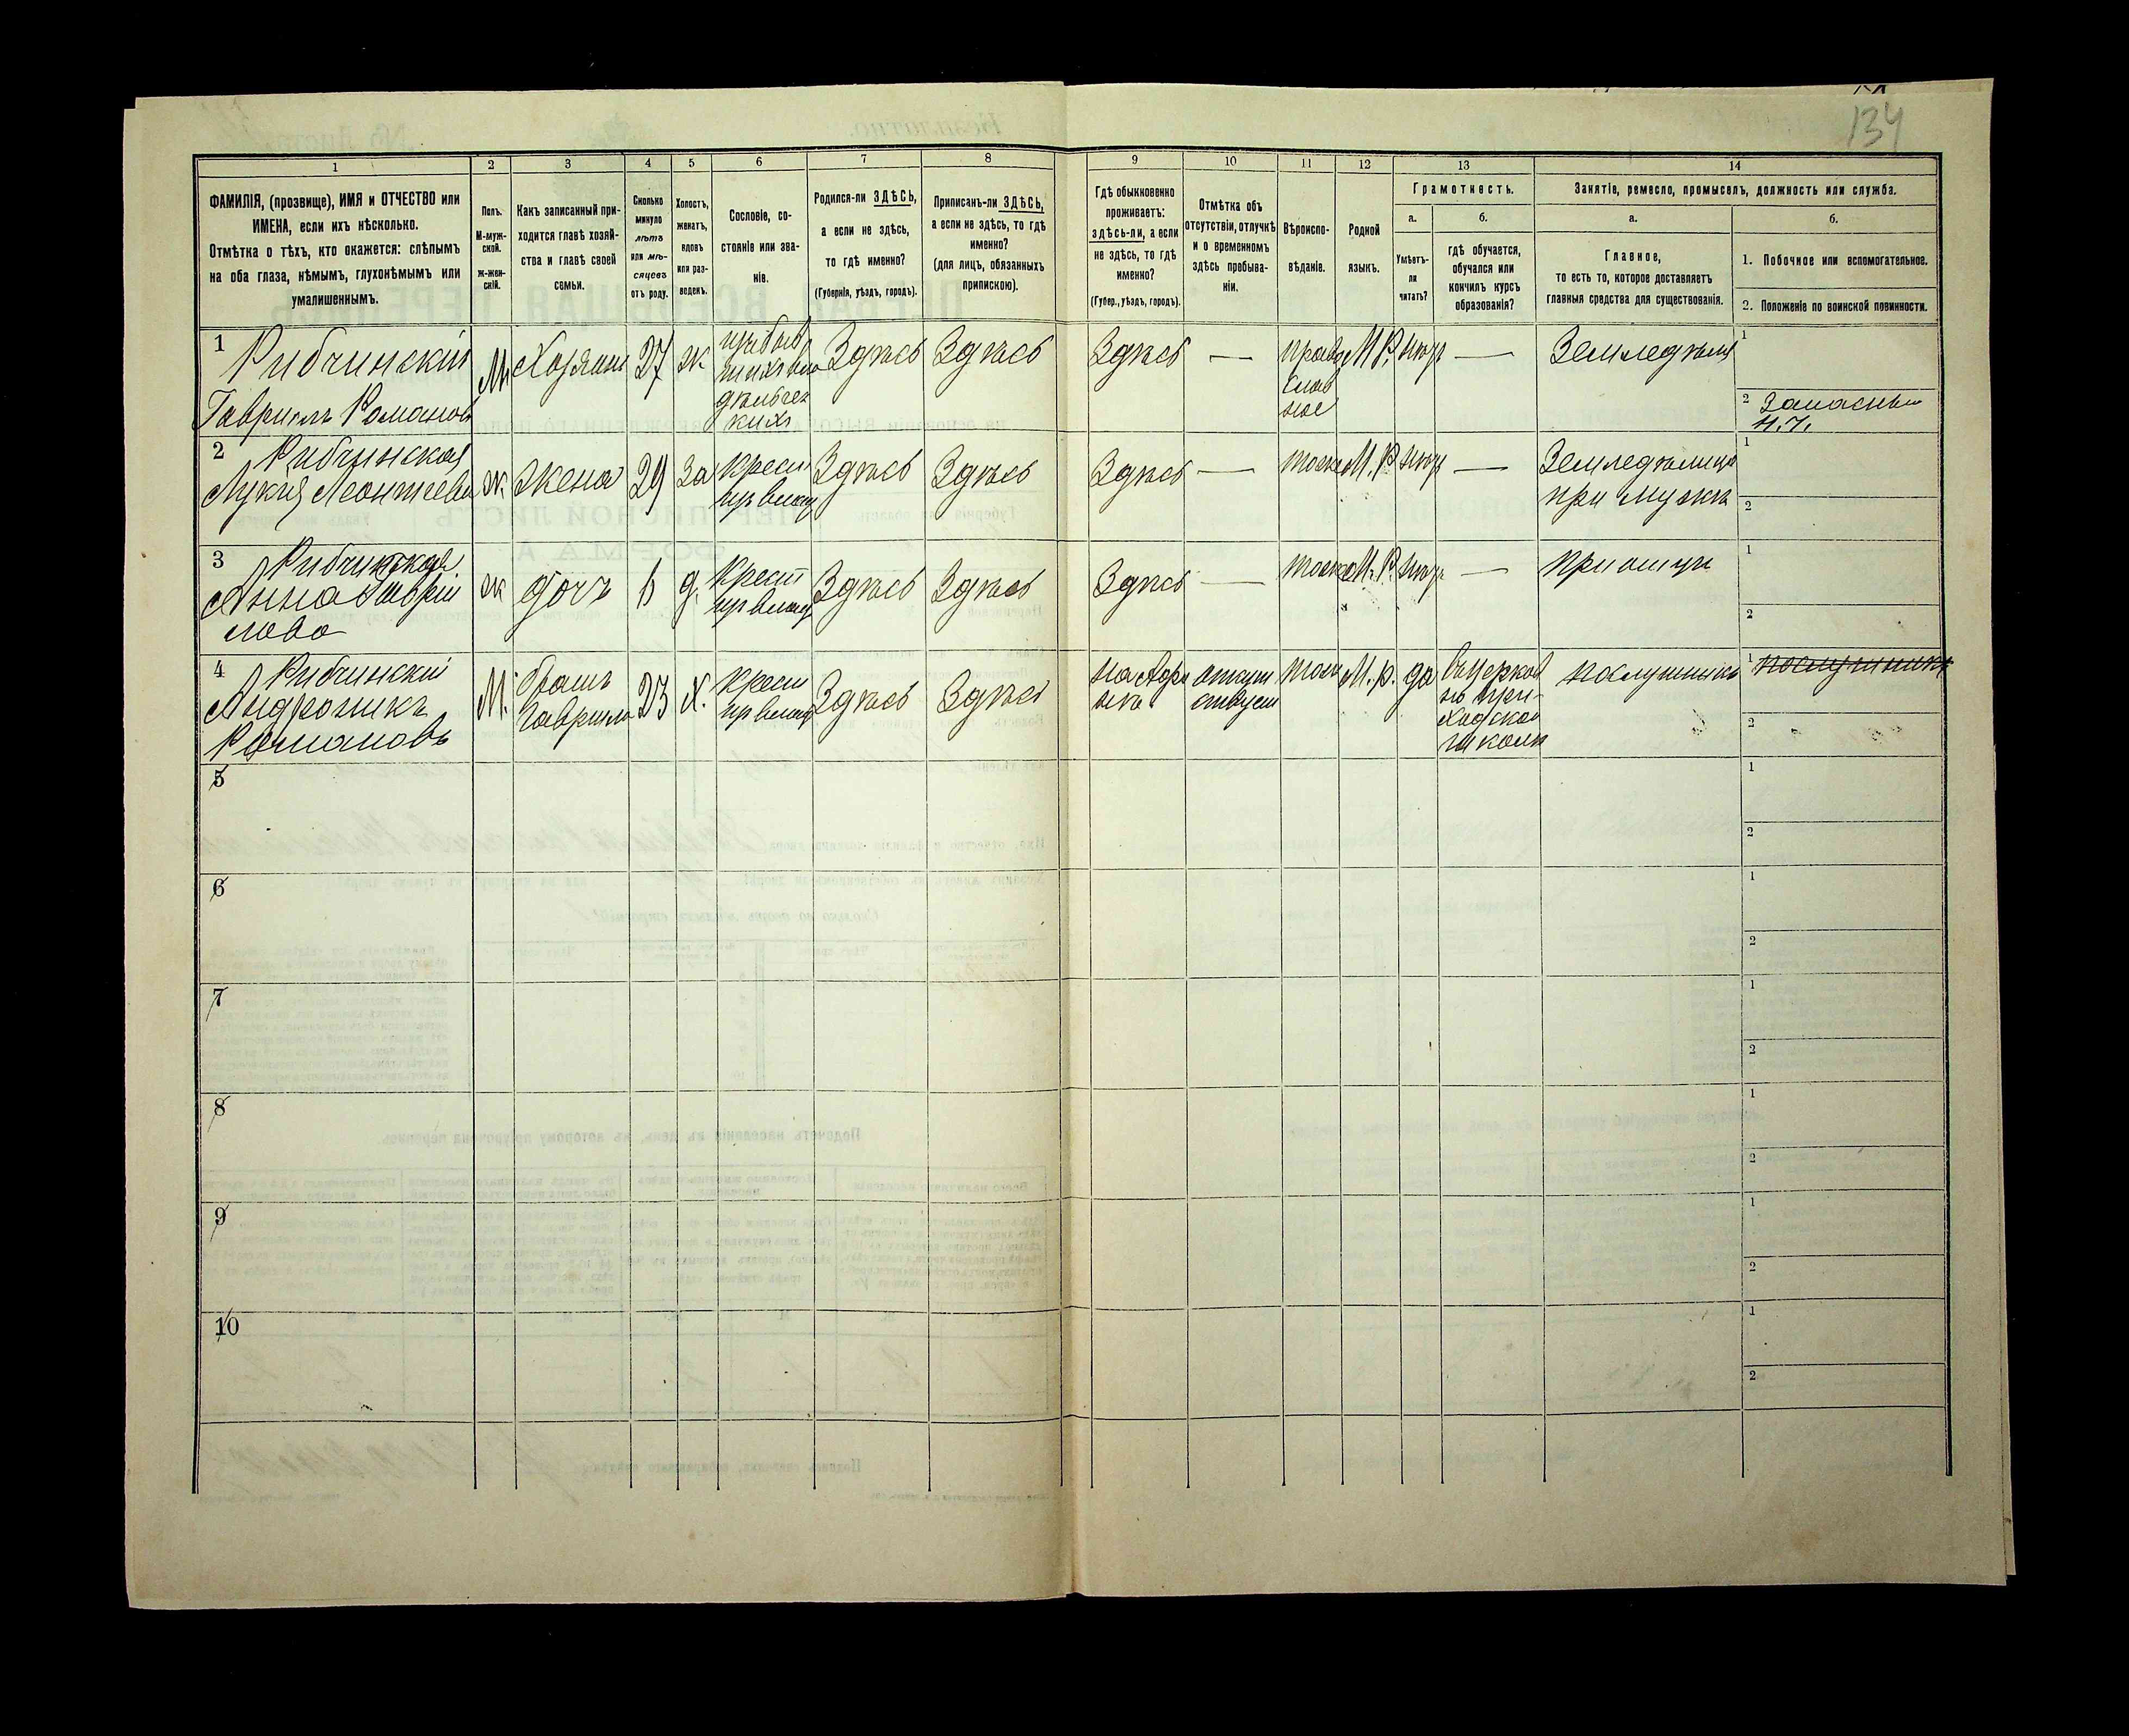 134
1 2 3 4 5 6 7 8 9 10 11 12 13 14
ФАМИЛІЯ, (прозвище), ИМЯ и ОТЧЕСТВО или
ИМЕНА, если ихъ нѣсколько.
Отмѣтка о тѣхъ, кто окажется: слѣпымъ
на оба глаза, нѣмымъ, глухонѣмымъ или
умалишеннымъ.
Полъ.
М-муж-
ской.
Ж-жен-
скій.
Какъ записанный при-
ходится главѣ хозяй-
ства и главѣ своей
семьи.
Сколько
минуло
лѣтъ
или мѣ-
сяцевъ
отъ роду.
Холостъ,
женатъ,
вдовъ
или раз-
веденъ.
Сословіе, со-
стояніе или зва-
ніе.
Родился-ли ЗДѢСЬ,
а если не здѣсь,
то гдѣ именно?
(Губернія, уѣздъ, городъ).
Приписанъ-ли ЗДѢСЬ,
а если не здѣсь, то гдѣ
именно?
(для лицъ, обязанныхъ
припискою).
Гдѣ обыкновенно
проживаетъ:
здѣсь-ли, а если
не здѣсь, то гдѣ
именно?
(Губер., уѣздъ, городъ).
Отмѣтка объ
отсутствіи, отлучкѣ
и о временномъ
здѣсь пребыва-
ніи.
Вѣроиспо-
вѣданіе.
Родной
языкъ.
Грамотность.
а.
Умѣетъ-
ли
читать?
б.
гдѣ обучается,
обучался или
кончилъ курсъ
образованія?
Занятіе, ремесло, промыселъ, должность или служба.
а.
Главное,
то есть то, которое доставляетъ
главныя средства для существованія.
б.
1. Побочное или вспомогательное.
2. Положеніе по воинской повинности.
1
Рибчинскій
Гавриилъ Романовъ
М Хозяинъ 27 ж
Здѣсь Здѣсь Здѣсь —
право
слав
ное
М. Р. нѣтъ —
1
2
2
Рибчинская
Лукія Леонтіева
ж жена 29 за
крест
изъ влад
Здѣсь Здѣсь Здѣсь — тоже М. Р. нѣтъ —
при мужѣ
1
2
3
Рибчинская
Анна Гаврiи
лова
ж дочь
д
крест
из влад
Здѣсь Здѣсь Здѣсь — тоже М. Р. нѣтъ —
при отцѣ
1
2
4
Рибчинскій
Андроникъ
Романовъ
М.
братъ
Гавриила
23 Х.
крест
из влад
Здѣсь Здѣсь
на Афо
нѣ
отсут
ствует
тоже М. р. да
въ церков
но при-
ходской
школѣ
послушникъ
1 послушникъ
2
5
1
2
6
1
2
7
1
2
8
1
2
9
1
2
10
1
2